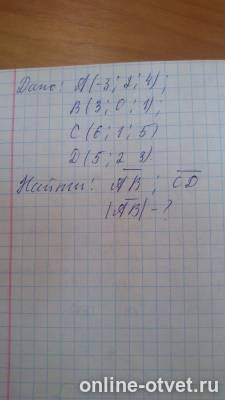 Дано: A(-3; 2; 4);
B(3; 0; 1);
C(6; 1; 5)
D(5; 2 3).
Найти: AB; CD
|AB| - ?
online-otvet.ru